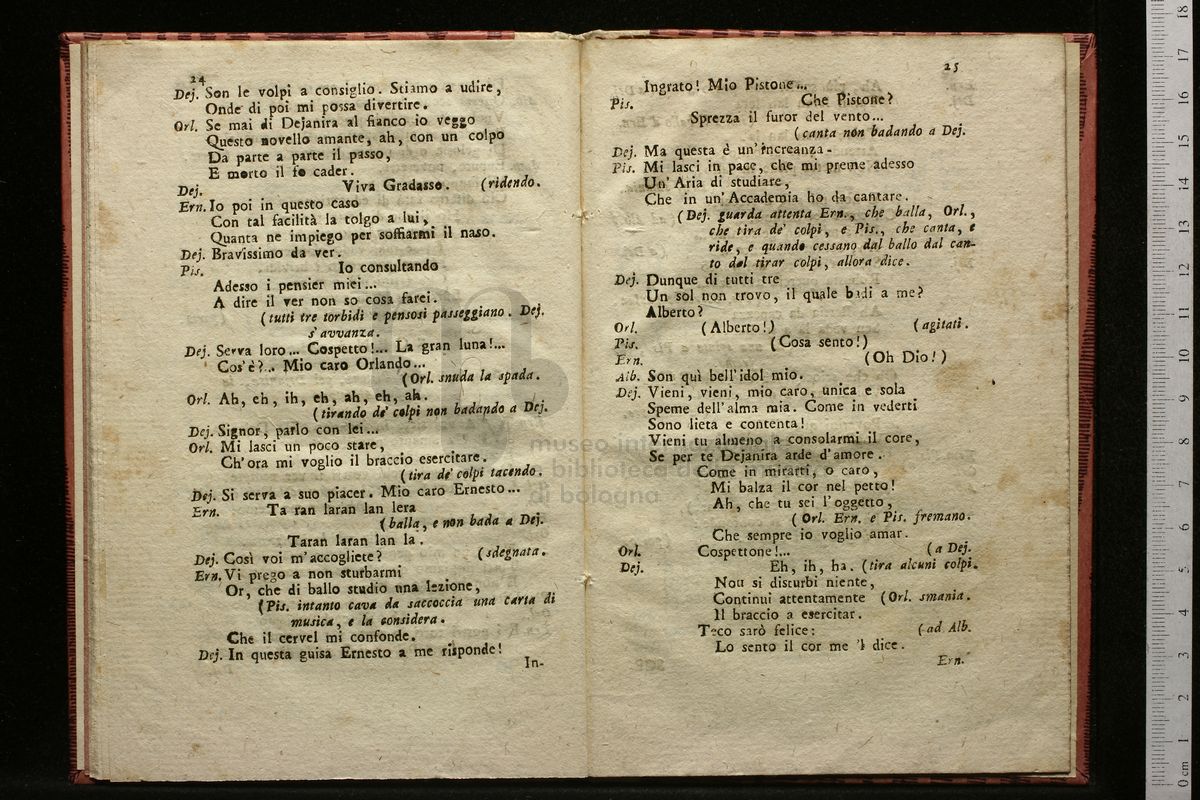 24
Dej. Son le volpi a consiglio. Stiamo a udire,
Onde di poi mi possa divertire.
Orl. Se mai di Dejanira al fianco io veggo
Questo novello amante, ah, con un colpo
Da parte a parte il passo,
E morto il fo cader.
Dej. Viva Gradasso. (ridendo.
Ern. Io poi in questo caso
Con tal facilità la tolgo a lui,
Quanta ne impiego per soffiarmi il naso.
Dej. Bravissimo da ver.
Pis. Io consultando
Adesso i pensier miei...
A dire il ver non so cosa farei.
(tutti tre torbidi e pensosi passeggiano. Dej.
s'avvanza.
Dej. Serva loro... Cospetto!... La gran luna!...
Cos'è?... Mio caro Orlando...
(Orl. snuda la spada.
Orl. Ah, eh, ih, eh, ah, eh, ah.
(tirando de' colpi non badando a Dej.
Dej. Signor, parlo con lei...
Orl. Mi lasci un poco stare,
Ch'ora mi voglio il braccio esercitare.
(tira de' colpi tacendo.
Dej. Si serva a suo piacer. Mio caro Ernesto...
Ern. Ta ran laran lan lera
(balla, e non bada a Dej.
Taran laran lan la.
Dej. Così voi m'accogliete? (sdegnata.
Ern. Vi prego a non sturbarmi
Or, che di ballo studio una lezione,
(Pis. intanto cava da saccoccia una carta di
musica, e la considera.
Che il cervel mi confonde.
Dej. In questa guisa Ernesto a me risponde!
In-
25
Ingrato! Mio Pistone...
Pis. Che Pistone?
Sprezza il furor del vento...
(canta non badando a Dej.
Dej. Ma questa è un'increanza-
Pis. Mi lasci in pace, che mi preme adesso
Un'Aria di studiare,
Che in un'Accademia ho da cantare.
(Dej. guarda attenta Ern., che balla, Orl.,
che tira de' colpi, e Pis., che canta, e
ride, e quando cessano dal ballo dal can-
to dal tirar colpi, allora dice.
Dej. Dunque di tutti tre
Un sol non trovo, il quale badi a me?
Alberto?
Orl. (Alberto!) (agitati.
Pis. (Cosa sento!)
Ern. (Oh Dio!)
Alb. Son quì bell'idol mio.
Dej. Vieni, vieni, mio caro, unica e sola
Speme dell'alma mia. Come in vederti
Sono lieta e contenta!
Vieni tu almeno a consolarmi il core,
Se per te Dejanira arde d'amore.
Come in mirarti, o caro,
Mi balza il cor nel petto!
Ah, che tu sei l'oggetto,
(Orl. Ern. e Pis. fremano.
Che sempre io voglio amar.
Orl. Cospettone!... (a Dej.
Dej. Eh, ih, ha. (tira alcuni colpi.
Non si disturbi niente,
Continui attentamente (Orl. smania.
Il braccio a esercitar.
Teco sarò felice: (ad Alb.
Lo sento il cor me 'l dice.
Ern.